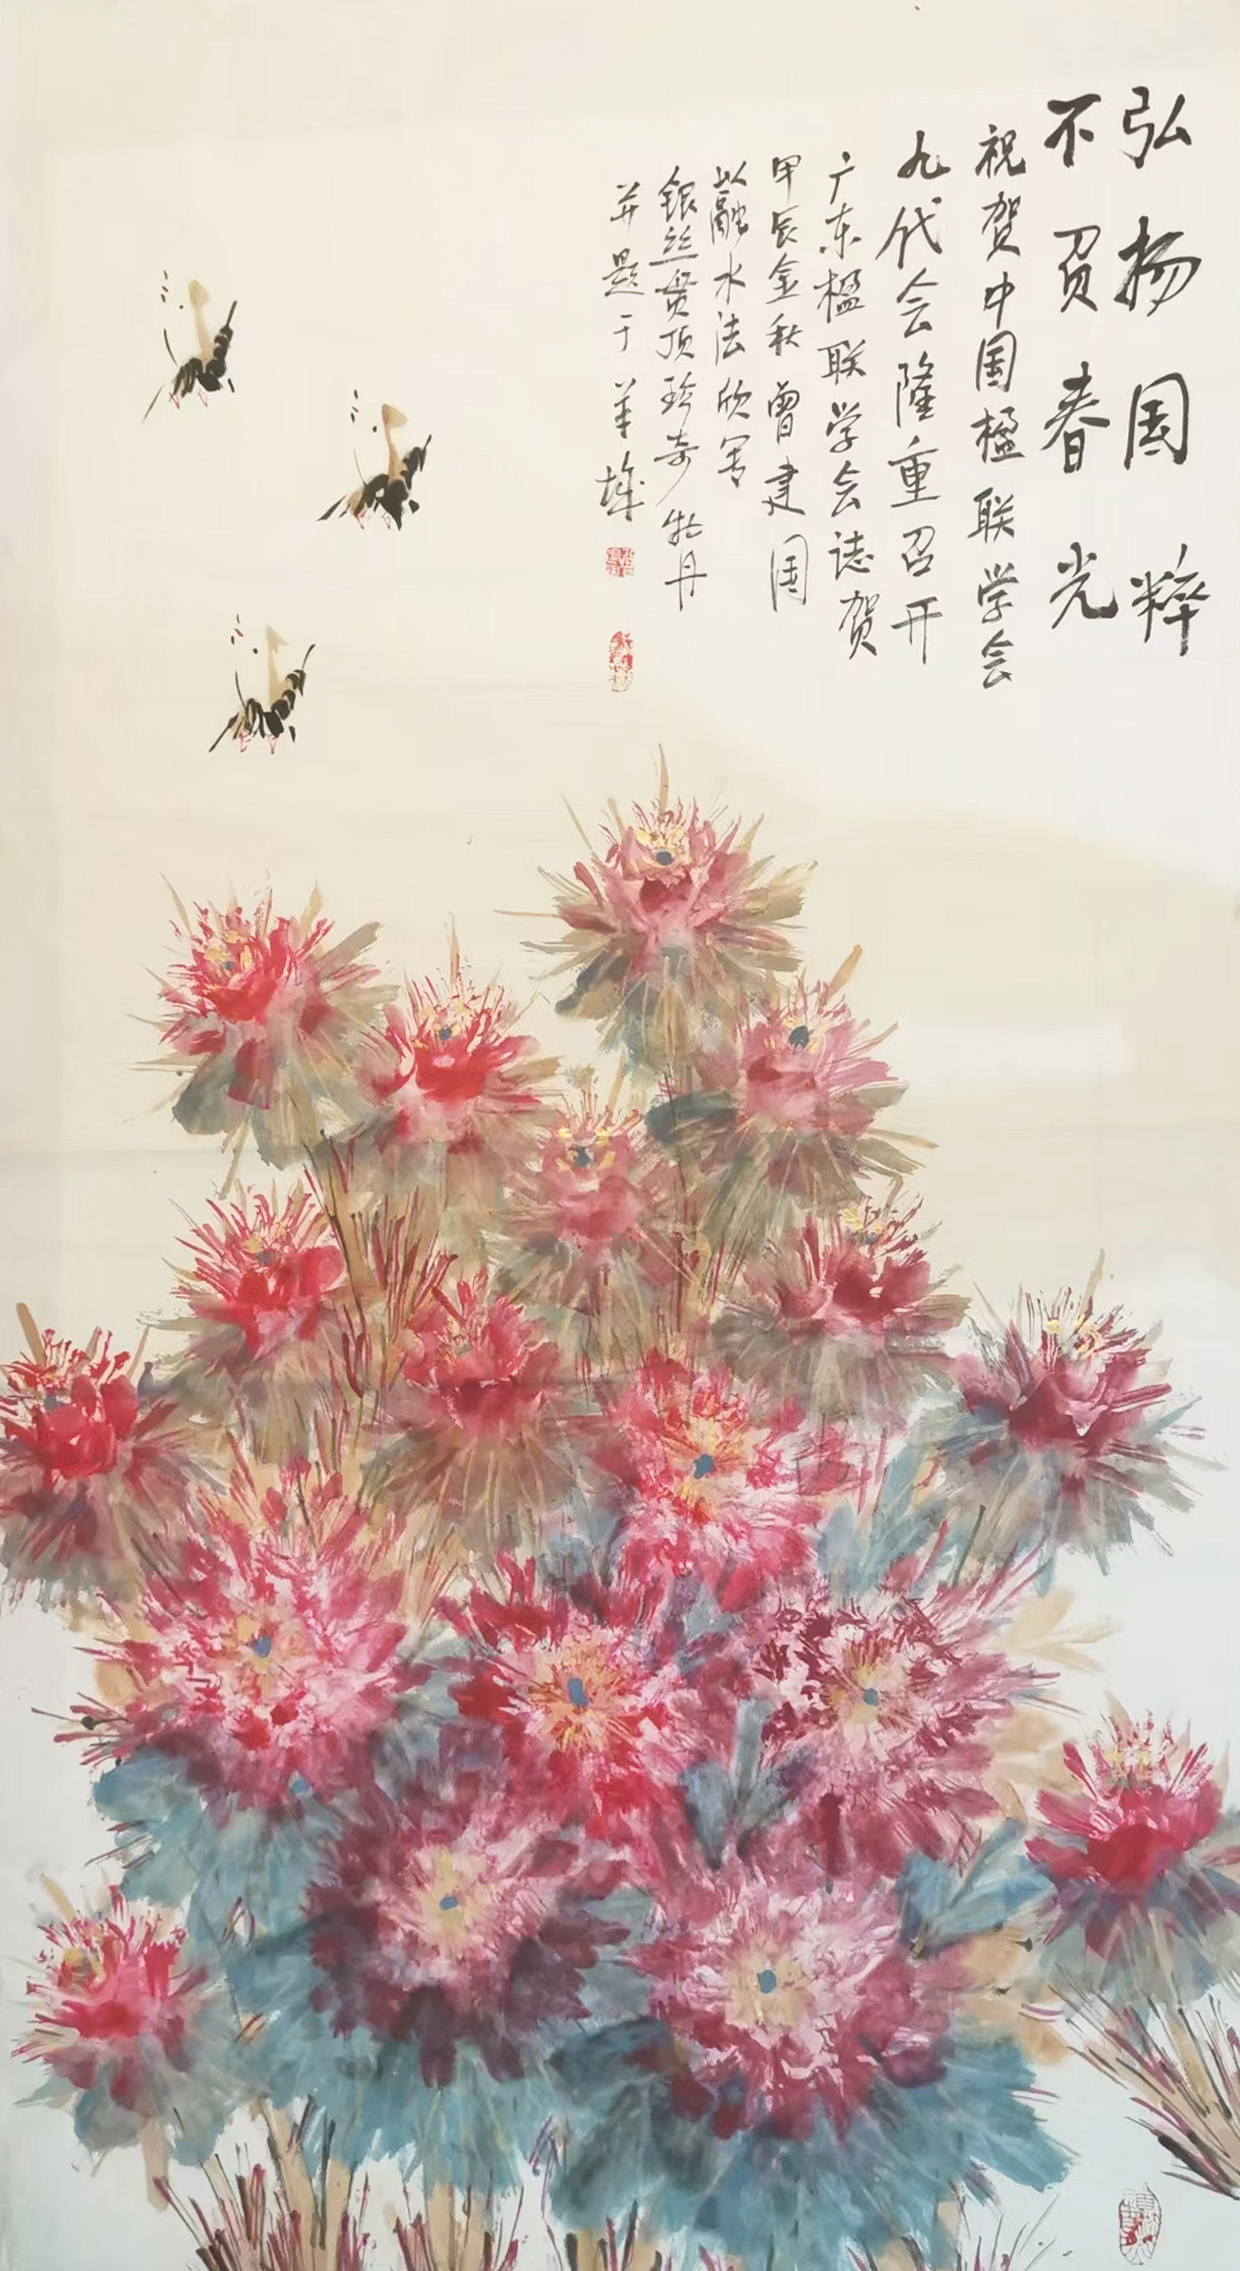 弘扬国粹
不负春光
祝贺中国楹联学会
九代会隆重召开
广东楹联学会誌贺
甲辰金秋曾建国
以融水法欣写
银丝贯顶珍奇牡丹
并题于羊城